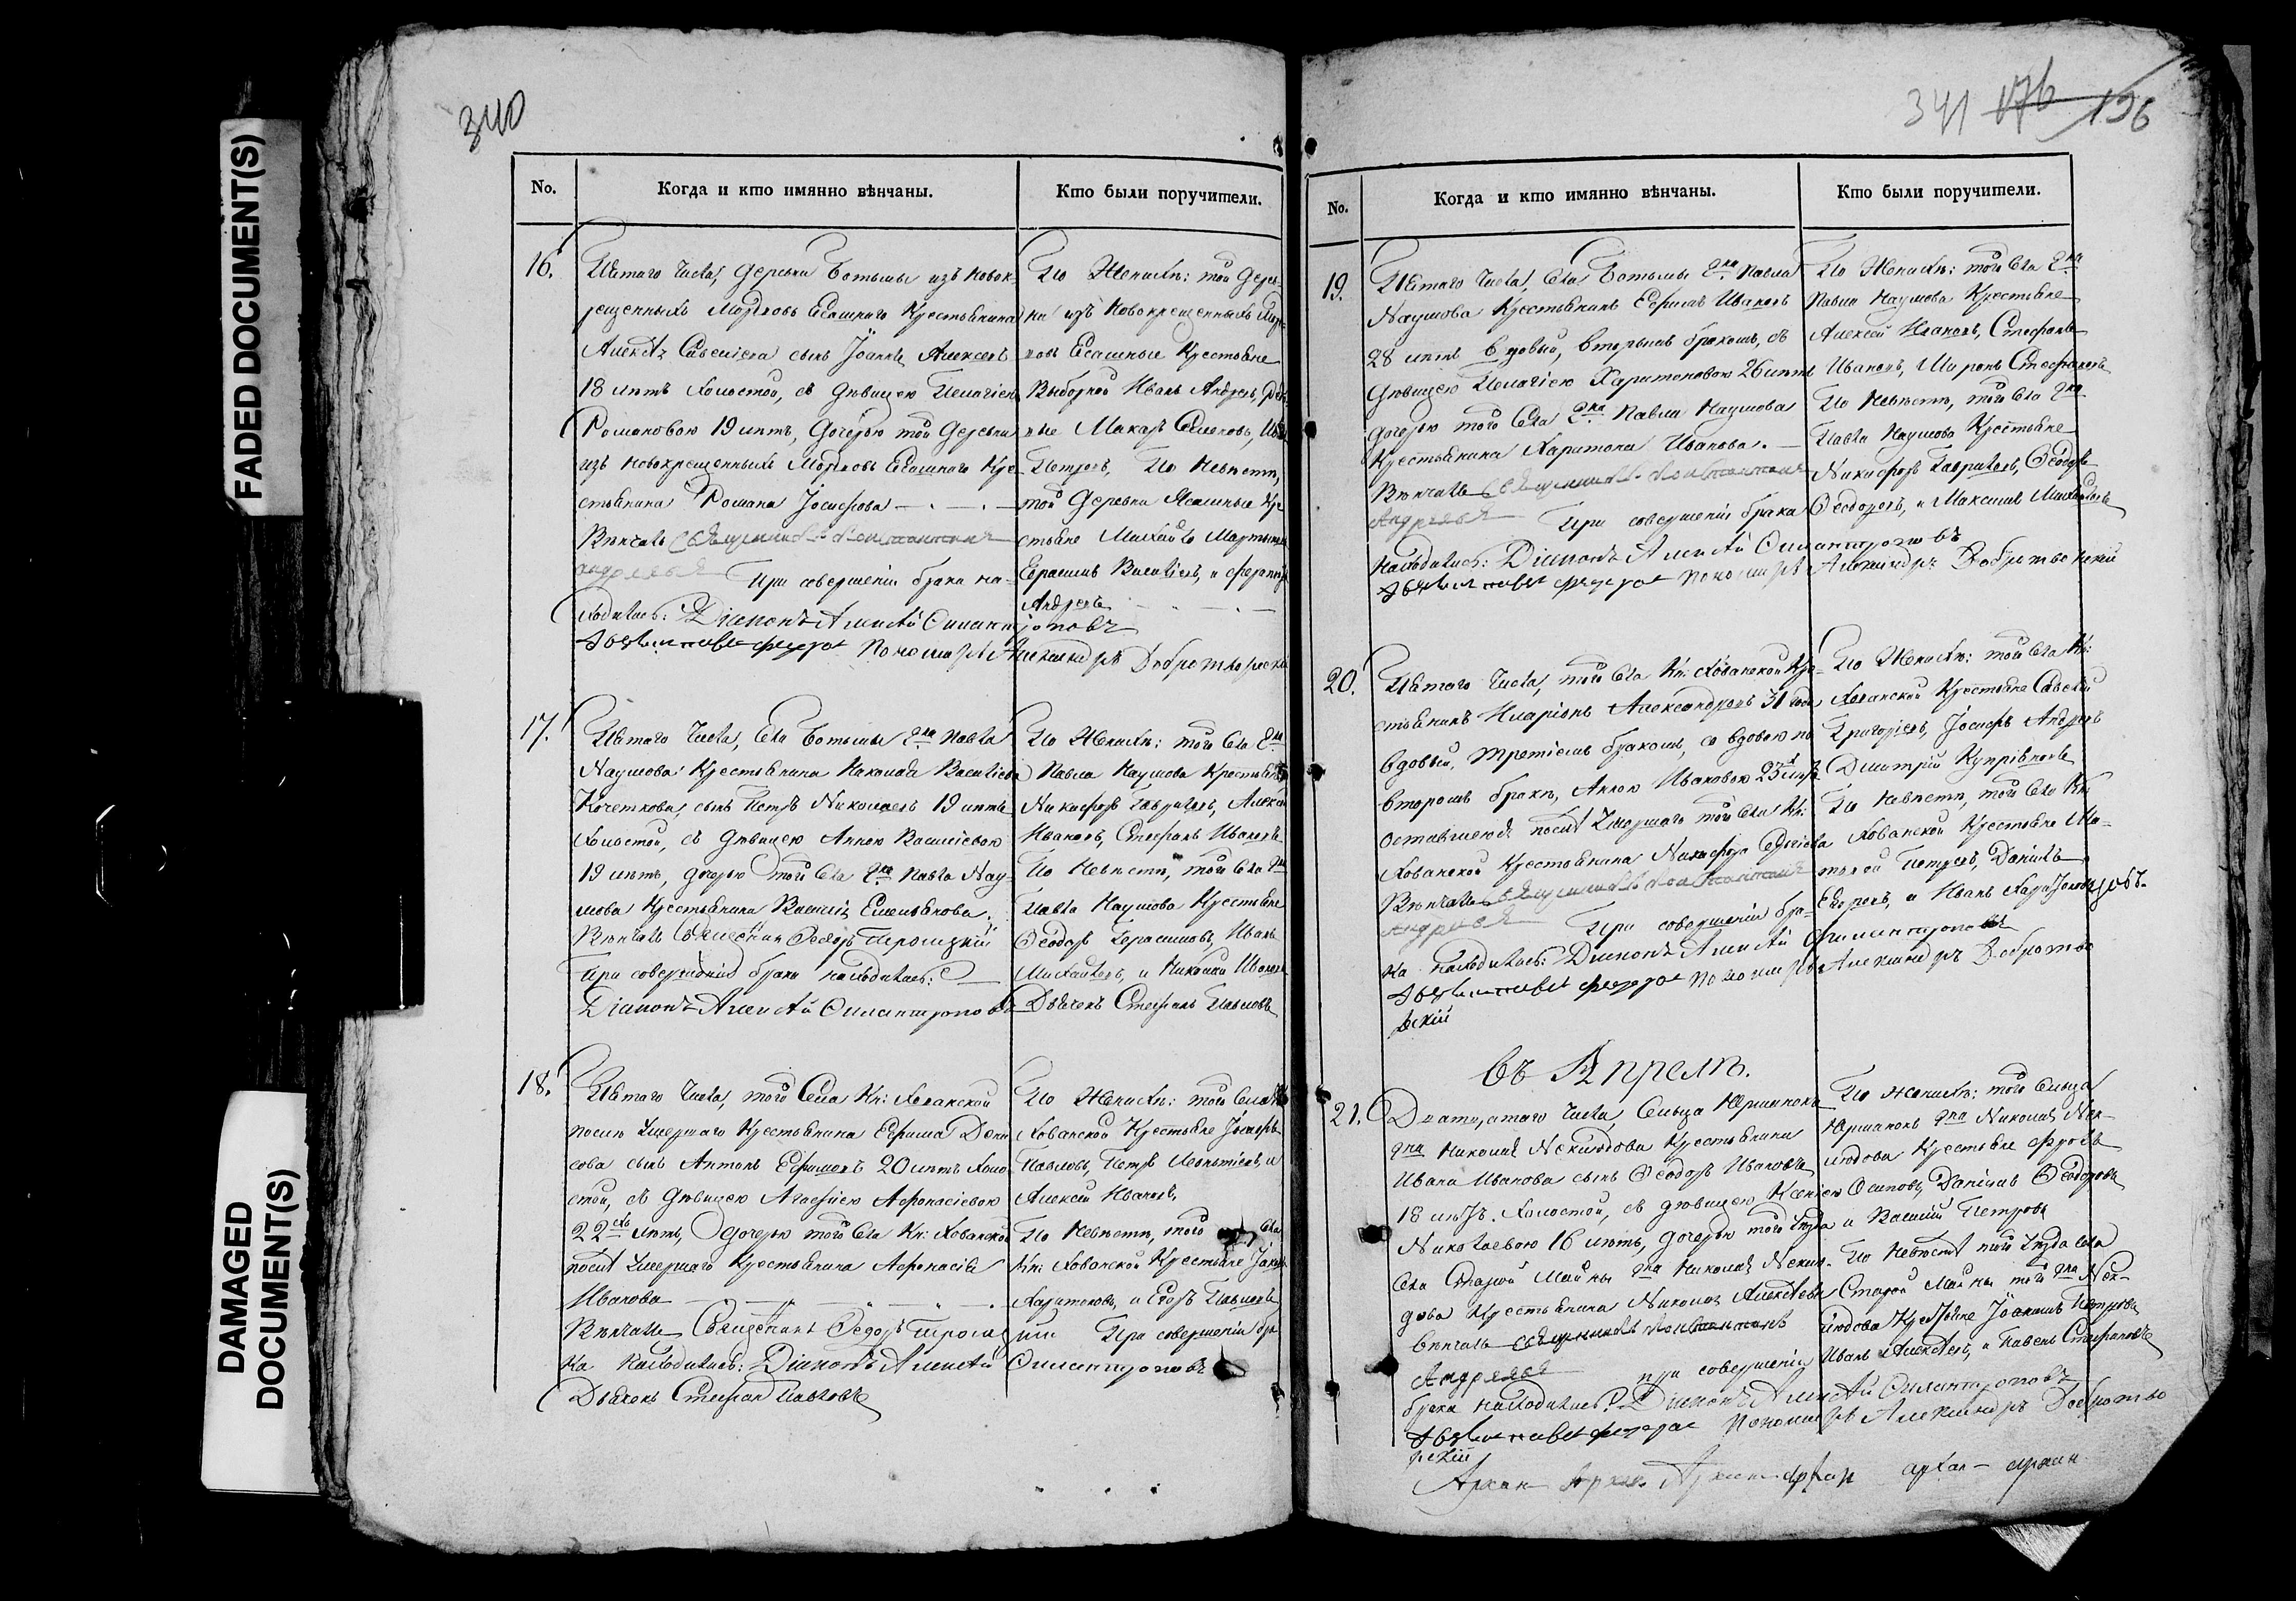 FADED DOCUMENT(S)
DAMAGED
DOCUMENT(S)
340
No.
Когда и кто имянно вѣнчаны.
Кто были поручители.
16.
Пятаго числа, деревни Ботьмы изъ новок-
рещенныхъ Мордовъ Ясашнаго Крестьянина
сынъ Іоаннъ Алексѣевъ
18 лѣтъ холостой, съ дѣвицею Пелагіею
Романовою 19 лѣтъ, дочерью той деревни
изъ новокрещенныхъ Мордовъ Ясашнаго Кре-
стьянина Романа Іосифова
Вѣнчалъ священникъ Константинъ
Андреевъ При совершеніи брака на-
ходились: Діаконъ Алексѣй Филантроповъ
Пономарь Александръ Добротворскій
По Женихѣ: той дерев-
ни изъ Новокрещенныхъ Мор-
довъ Ясашные Крестьяне
Выборной Иванъ Андреевъ,
Макаръ Семеновъ,
Петровъ, По Невѣстѣ,
той деревни Ясашные Кре-
стьяне Михайло Мартыновъ
Василіевъ, и
Андреевъ
17.
Пятаго числа, села Ботьмы г.на Павла
Наумова Крестьянина Василіева
Кочеткова, сынъ Петръ Николаевъ 19 лѣтъ
холостой, съ дѣвицею Анною Василіевою
19 лѣтъ, дочерью того села г.на Павла Нау-
мова Крестьянина Василія Емельянова.
Вѣнчалъ Священникъ Ѳедоръ Троицкій
При совершеніи брака находились:
Діаконъ Алексѣй Филантроповъ
Дьячекъ Стефанъ Павловъ
По Женихѣ: того села г.на
Павла Наумова Крестьяне
Никифоръ Гавриловъ, Алексѣй
Ивановъ, Стефанъ Ивановъ
По Невѣстѣ, того села г.на
Павла Наумова Крестьяне
Ѳеодоръ Герасимовъ, Иванъ
Михайловъ, и Николай Ивановъ
18.
Пятаго числа, того Села Кн: Хованской
послѣ умершаго Крестьянина Ефима Дени-
сова сынъ Антонъ Ефимовъ 20 лѣтъ холо-
стой, съ дѣвицею Агафіею Афонасіевою
22хъ лѣтъ, дочерью того села Кн: Хованской
послѣ умершаго Крестьянина Афонасія
Иванова
Вѣнчалъ Священникъ Ѳедоръ Троицкій При совершеніи бра-
ка находились: Діаконъ Алексѣй Филантроповъ
Дьячекъ Стефанъ Павловъ
По Женихѣ: того села Кн
Хованской Крестьяне Іосифъ
Павловъ, Петръ Леонтіевъ, и
Алексѣй Ивановъ,
По Невѣстѣ, того села
Кн: Хованской Крестьяне Яковъ
Харитоновъ, и Егоръ Павловъ
341 176 196
No.
Когда и кто имянно вѣнчаны.
Кто были поручители.
19.
Пятаго числа, села Ботьмы г.на Павла
Наумова Крестьянинъ Ефимъ Ивановъ
28 лѣтъ вдовый, вторымъ бракомъ, съ
дѣвицею Пелагіею Харитоновою 26 лѣтъ
дочерью того села г.на Павла Наумова
Крестьянина Харитона Иванова.
Вѣнчалъ священникъ Константинъ
Андреевъ При совершеніи брака
находились: Діаконъ Алексѣй Филантроповъ
Пономарь Александръ Добротворскій
По Женихѣ: того села г.на
Павла Наумова Крестьяне
Алексѣй Ивановъ, Стефанъ
Ивановъ, Миронъ Стефановъ
По Невѣстѣ, того села г.на
Павла Наумова Крестьяне
Никифоръ Гавриловъ, Ѳеодоръ
Ѳеодоровъ, и Максимъ Михайловъ
20.
Пятаго числа, того села Кн: Хованской Кре-
стьянинъ Иларіонъ Александровъ 31 года
вдовый, третіемъ бракомъ, со вдовою по
второмъ бракѣ, Анною Ивановою 25 лѣтъ
оставшеюся послѣ умершаго того села Кн:
Хованской Крестьянина Никифора
Вѣнчалъ священникъ Константинъ
Андреевъ При совершеніи бра-
ка находились: Діаконъ Алексѣй Филантроповъ
Пономарь Александръ Добротво
рскій
По Женихѣ: того села Кн:
Хованской Крестьяне Савелій
Григоріевъ, Іосифъ Андреевъ
Дмитрій Купріяновъ
По Невѣстѣ, того села Кн:
Хованской Крестьяне
Петровъ, Даніилъ
Егоровъ, и Иванъ
въ Апрелѣ.
21.
Двадцатаго числа, сельца Юрманокъ
г.на Николая Неклюдова Крестьянина
Ивана Иванова сынъ Ѳеодоръ Ивановъ
18 лѣтъ. холостой, съ дѣвицею Ксеніею
Николаевою 16 лѣтъ, дочерью того уѣзда
села Старой Майны г.на Николая Неклю-
дова Крестьянина Николая Алексѣева
вѣнчалъ священникъ Константинъ
Андреевъ при совершеніи
брака находились: Діаконъ Алексѣй Филантроповъ
Пономарь Александръ Добротво
рскій
По женихѣ: того сельца
Юрманокъ г.на Николая Нек-
людова Крестьяне Фролъ
Осиповъ, Даніилъ Ѳеодоровъ
и Василій Петровъ
По Невѣстѣ того уѣзда села
Старой Майны того г.на Нек-
людова Крестьяне Іоакимъ Петровъ
Иванъ Алексѣевъ, и Павелъ Стефановъ